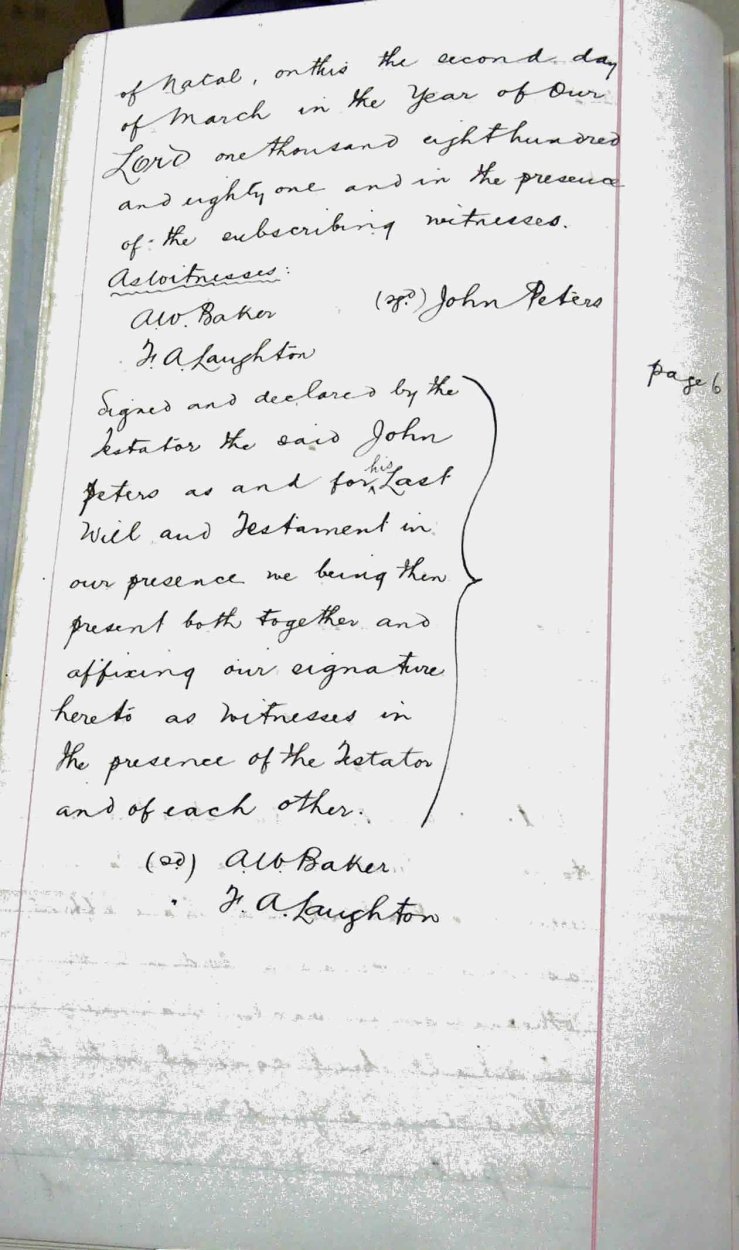 of Natal, on this the second day
of March in the Year of Our
Lord one thousand eight hundred
and eighty one and in the presence
of the subscribing witnesses.
As Witnesses:
A.W. Baker (sgd) John Peters
F. A. Laughton
page 6
Signed and declared by the
Testator the said John
Peters as and for his Last
Will and Testament in
our presence we being then
present both together and
affixing our signature
hereto as Witnesses in
the presence of the Testator
and of each other.
(sd) A.W. Baker
" F. A. Laughton